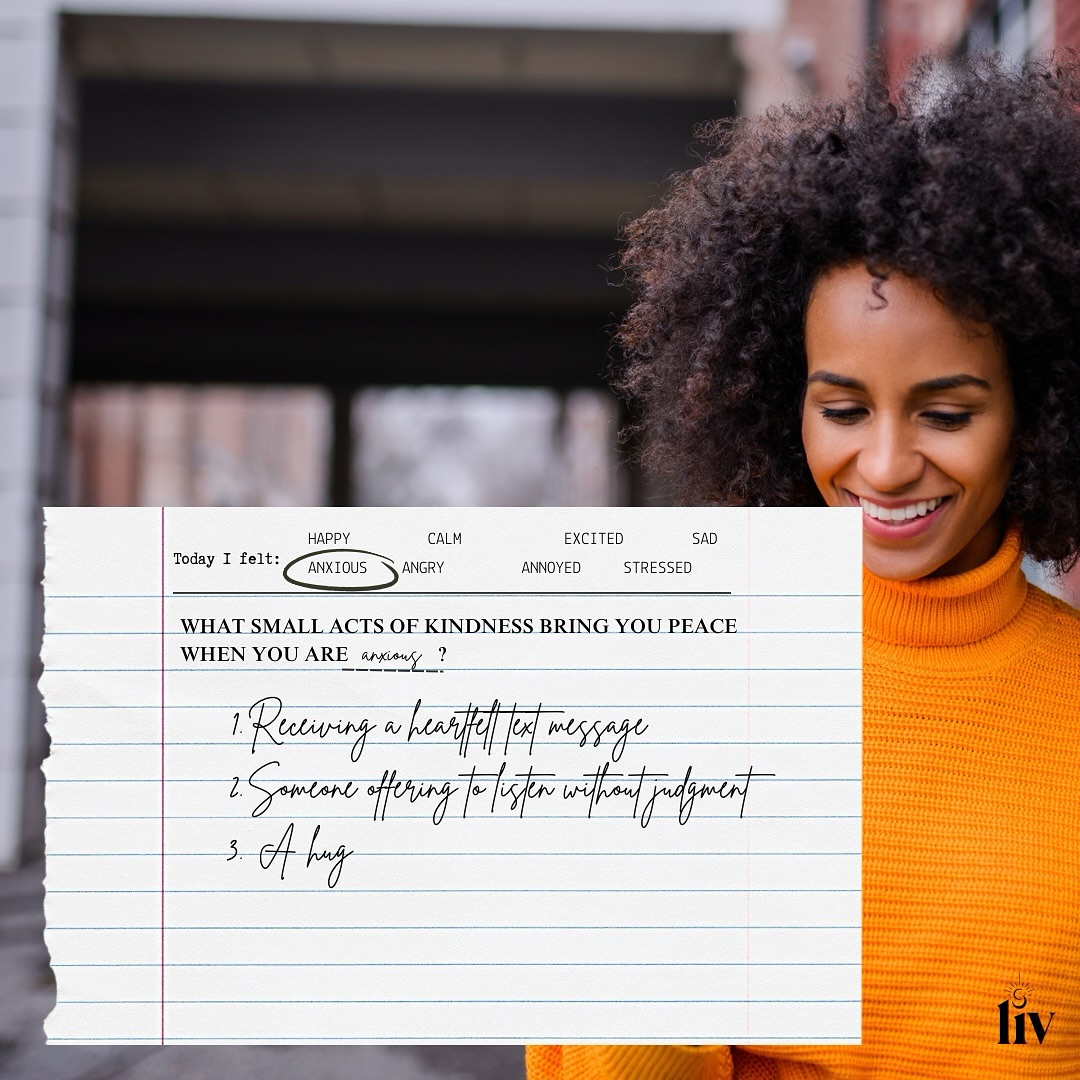 HAPPY CALM EXCITED SAD
Today I felt:
ANXIOUS ANGRY ANNOYED STRESSED
WHAT SMALL ACTS OF KINDNESS BRING YOU PEACE
WHEN YOU ARE anxious ?
1. Receiving a heartfelt text message
2. Someone offering to listen without judgment
3. A hug
liv